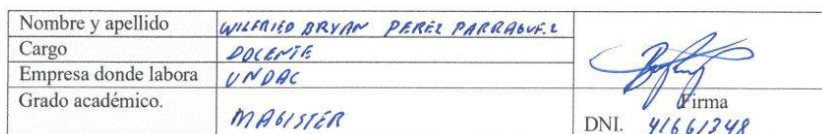 Nombre y apellido WILFRIED BRYAN PEREZ PARRAGUEZ
Cargo DOCENTE
Empresa donde labora UNDAC
Grado académico. MAGISTER
Firma
DNI. 41661348